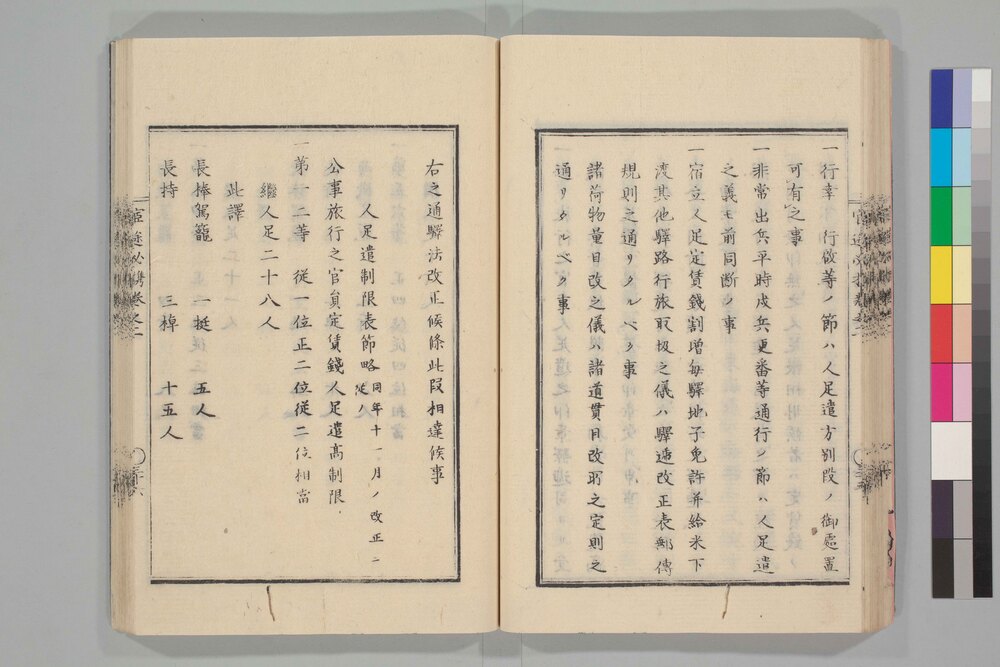 一行幸 行啟等ノ節ハ人足遣方別段ノ御處置
可有之事
一非常出兵平時戍兵更番等通行ノ節ハ人足遣
之義モ前同断ノ事
一宿立人足定賃錢割増毎驛地子免許并給米下
渡其他驛路行旅取扱之儀ハ驛逓改正表郵傳
規則之通リタルベク事
諸荷物量目改之儀ハ諸道貫目改所之定則之
通リタルベク事
右之通驛法改正候條此段相達候事
人足遣制限表節略 同年十一月ノ改正ニ従フ
公事旅行之官員定賃錢人足遣高制限
一第一二等 従一位正二位従二位相當
繼人足二十八人
此譯
長棒駕籠 一挺 五人
長持 三棹 十五人